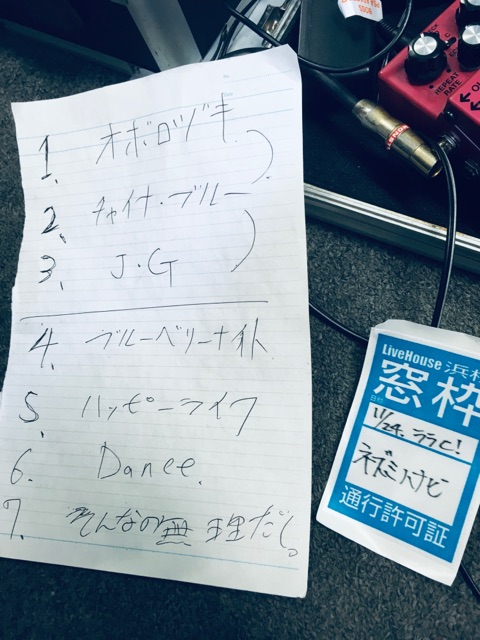 1. オボロヅキ
2. チャイナ・ブルー
3. J.G
4. ブルーベリーナイト
5. ハッピーライフ
6. Dance.
7. そんなの無理だし。
REPEAT RATE
LiveHouse 浜松
窓枠
11/24. ララC!
ネズミハナビ
通行許可証